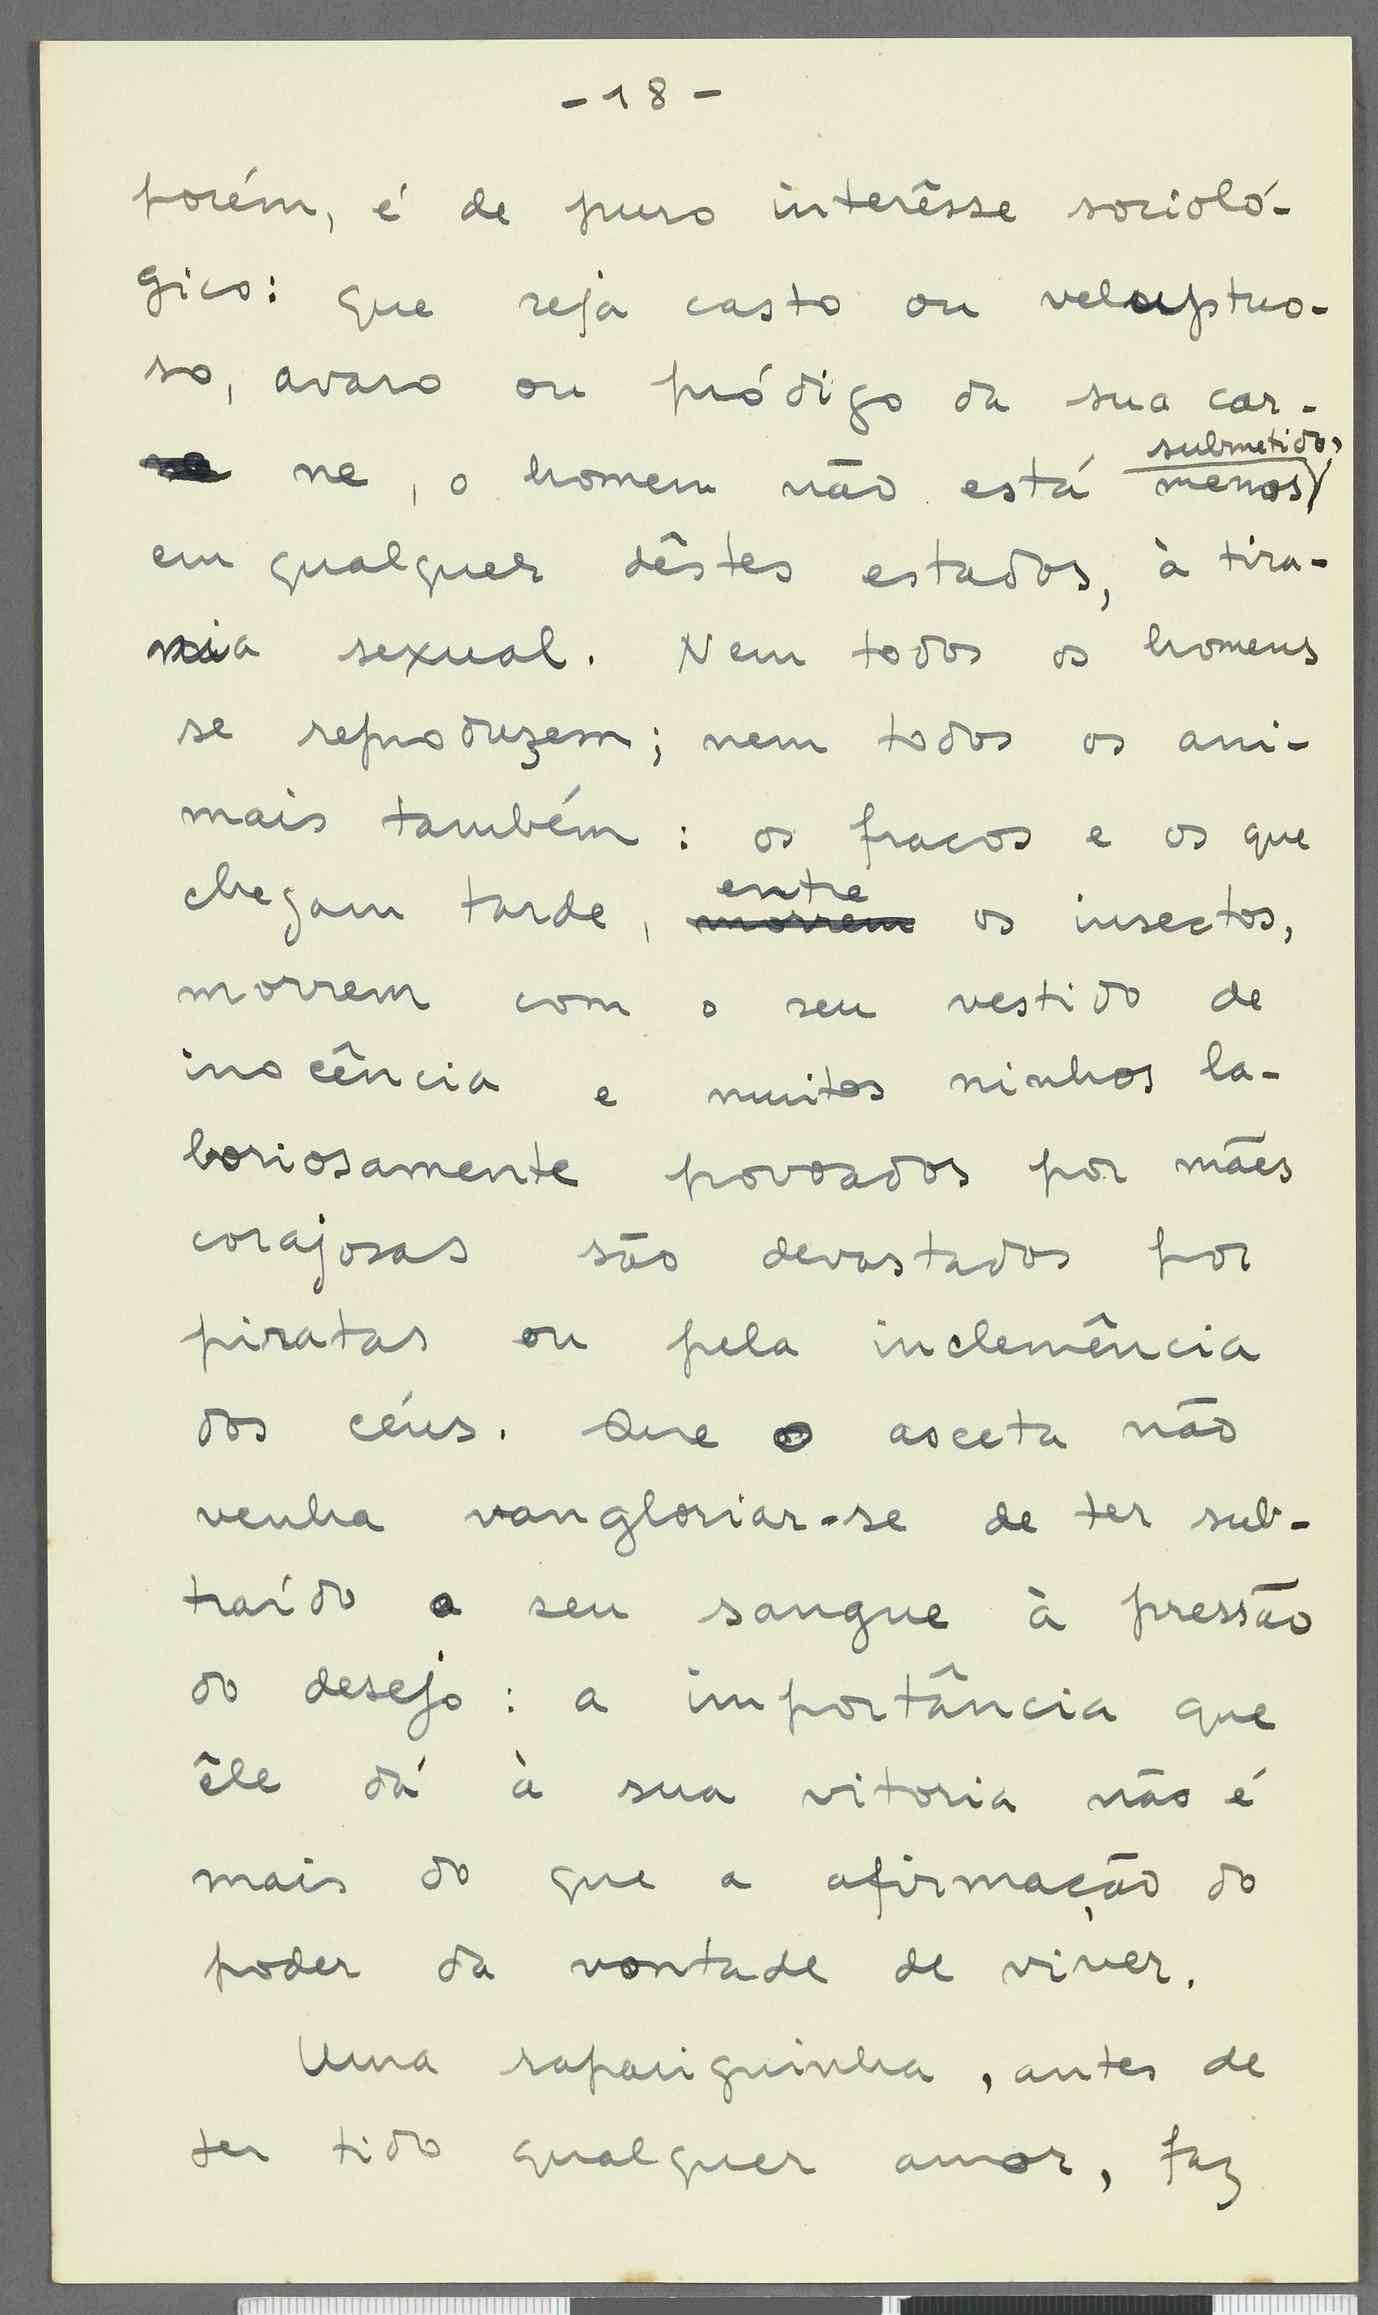 - 18 -
porém, é de puro interêsse socioló-
gico: que seja casto ou veluptuo-
so, avaro ou pródigo da sua car-
ne, o homem não está menos submetido,
em qualquer dêstes estados, à tira-
nia sexual. Nem todos os homens
se reproduzem; nem todos os ani-
mais também: os fracos e os que
chegam tarde, morrem entre os insectos,
morrem com o seu vestido de
inocência e muitos ninhos la-
boriosamente povoados por mães
corajosas são devastados por
piratas ou pela inclemência
dos céus. Que o asceta não
venha vangloriar-se de ter sub-
traído o seu sangue à pressão
do desejo: a importância que
êle dá à sua vitoria não é
mais do que a afirmação do
poder da vontade de viver.
Uma rapariguinha, antes de
ter tido qualquer amor, faz